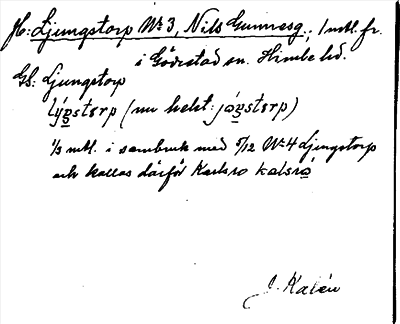 Hf: Ljungstorp No 3, Nils Gunnarsg., 1 mtl. fr.
i Gödestad sn. Himle hd.
GS: Ljungstorp
lýgstorp (nu helst: jógstorp)
1/3 mtl. i sambruk med 5/12 No 4 Ljungstorp
och kallas därför Karlsro kalsro
J. Kalén